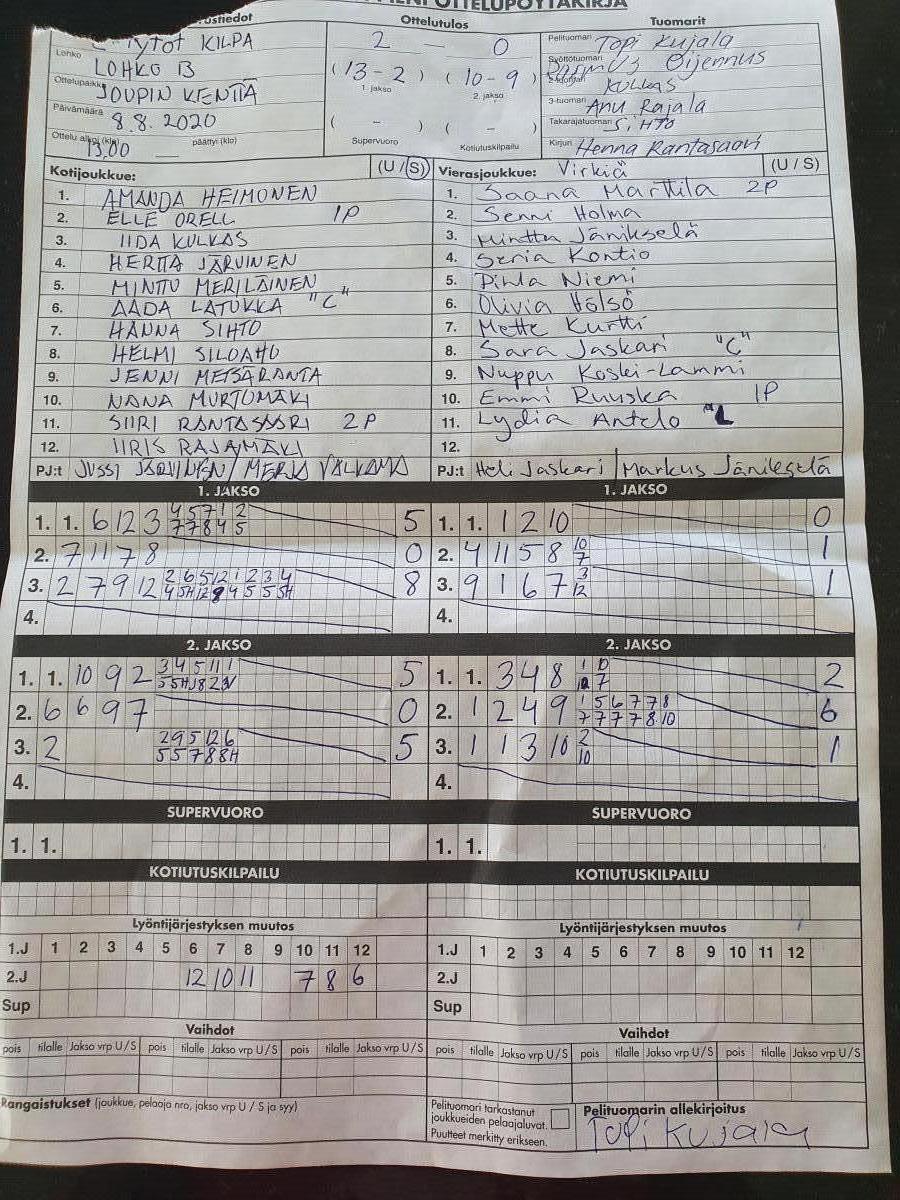 PIENI OTTELUPÖYTÄKIRJA
Ottelutulos
Tuomarit
KILPA
Lohko LOHKO B
Ottelupaikka JOUPIN KENTTÄ
Päivämäärä 8.8.2020
Ottelu alkoi (klo) 13.00 päättyi (klo)
2 — 0
(13-2) (10-9)
1. jakso 2. jakso
( - ) ( - )
Supervuoro Kotiutuskilpailu
Pelituomari Topi Kujala
Syöttötuomari Öijennus
2-tuomari Kulkas
3-tuomari Anu Rajala
Takarajatuomari Sihto
Kirjuri Henna Rantasaari
Kotijoukkue: (U/S)
1. AMANDA HEIMONEN
2. ELLE ORELL 1P
3. IIDA KULKAS
4. HERTTA JÄRVINEN
5. MINTTU MERILÄINEN
6. AADA LATUKKA "C"
7. HANNA SIHTO
8. HELMI SILOAHO
9. JENNI METSÄRANTA
10. NANA MURTOMÄKI
11. SIIRI RANTASAARI 2P
12. IIRIS RAJAMÄKI
PJ:t JUSSI JÄRVINEN / MERJA VALKAMA
Vierasjoukkue: Virkiä (U/S)
1. Saana Marttila 2P
2. Senni Holma
3. Minttu Jänikselä
4. Seria Kontio
5. Pihla Niemi
6. Olivia Holsö
7. Mette Kurtti
8. Sara Jaskari "C"
9. Nuppu Koski-Lammi
10. Emmi Ruuska 1P
11. Lydia Antelo
12.
PJ:t Heli Jaskari | Markus Jänikselä
1. JAKSO
1. 1. 6 12 3 4 5 7 1 2 5
7 7 8 4 5
2. 7 11 7 8 0
3. 2 7 9 12 2 6 5 12 1 2 3 4 8
4.
1. JAKSO
1. 1. 1 2 10 0
2. 4 11 5 8 10 1
7
3. 9 1 6 7 3 1
12
4.
2. JAKSO
1. 1. 10 9 2 3 4 5 11 1 5
2. 6 6 9 7 0
3. 2 2 9 5 12 6 5
5 5 7 8 8H
4.
2. JAKSO
1. 1. 3 4 8 2
2. 1 2 4 9 1 5 6 7 7 8 6
7 7 7 7 8 10
3. 1 1 3 10 2 1
10
4.
SUPERVUORO
1. 1.
SUPERVUORO
1. 1.
KOTIUTUSKILPAILU
KOTIUTUSKILPAILU
Lyöntijärjestyksen muutos
1.J 1 2 3 4 5 6 7 8 9 10 11 12
2.J 12 10 11 7 8 6
Sup
Lyöntijärjestyksen muutos
1.J 1 2 3 4 5 6 7 8 9 10 11 12
2.J
Sup
Vaihdot
pois tilalle Jakso vrp U/S pois tilalle Jakso vrp U/S pois tilalle Jakso vrp U/S
Vaihdot
pois tilalle Jakso vrp U/S pois tilalle Jakso vrp U/S pois tilalle Jakso vrp U/S
Rangaistukset (joukkue, pelaaja nro, jakso vrp U / S ja syy)
Pelituomari tarkastanut
joukkueiden pelaajaluvat.
Puutteet merkitty erikseen.
Pelituomarin allekirjoitus
Topi Kujala